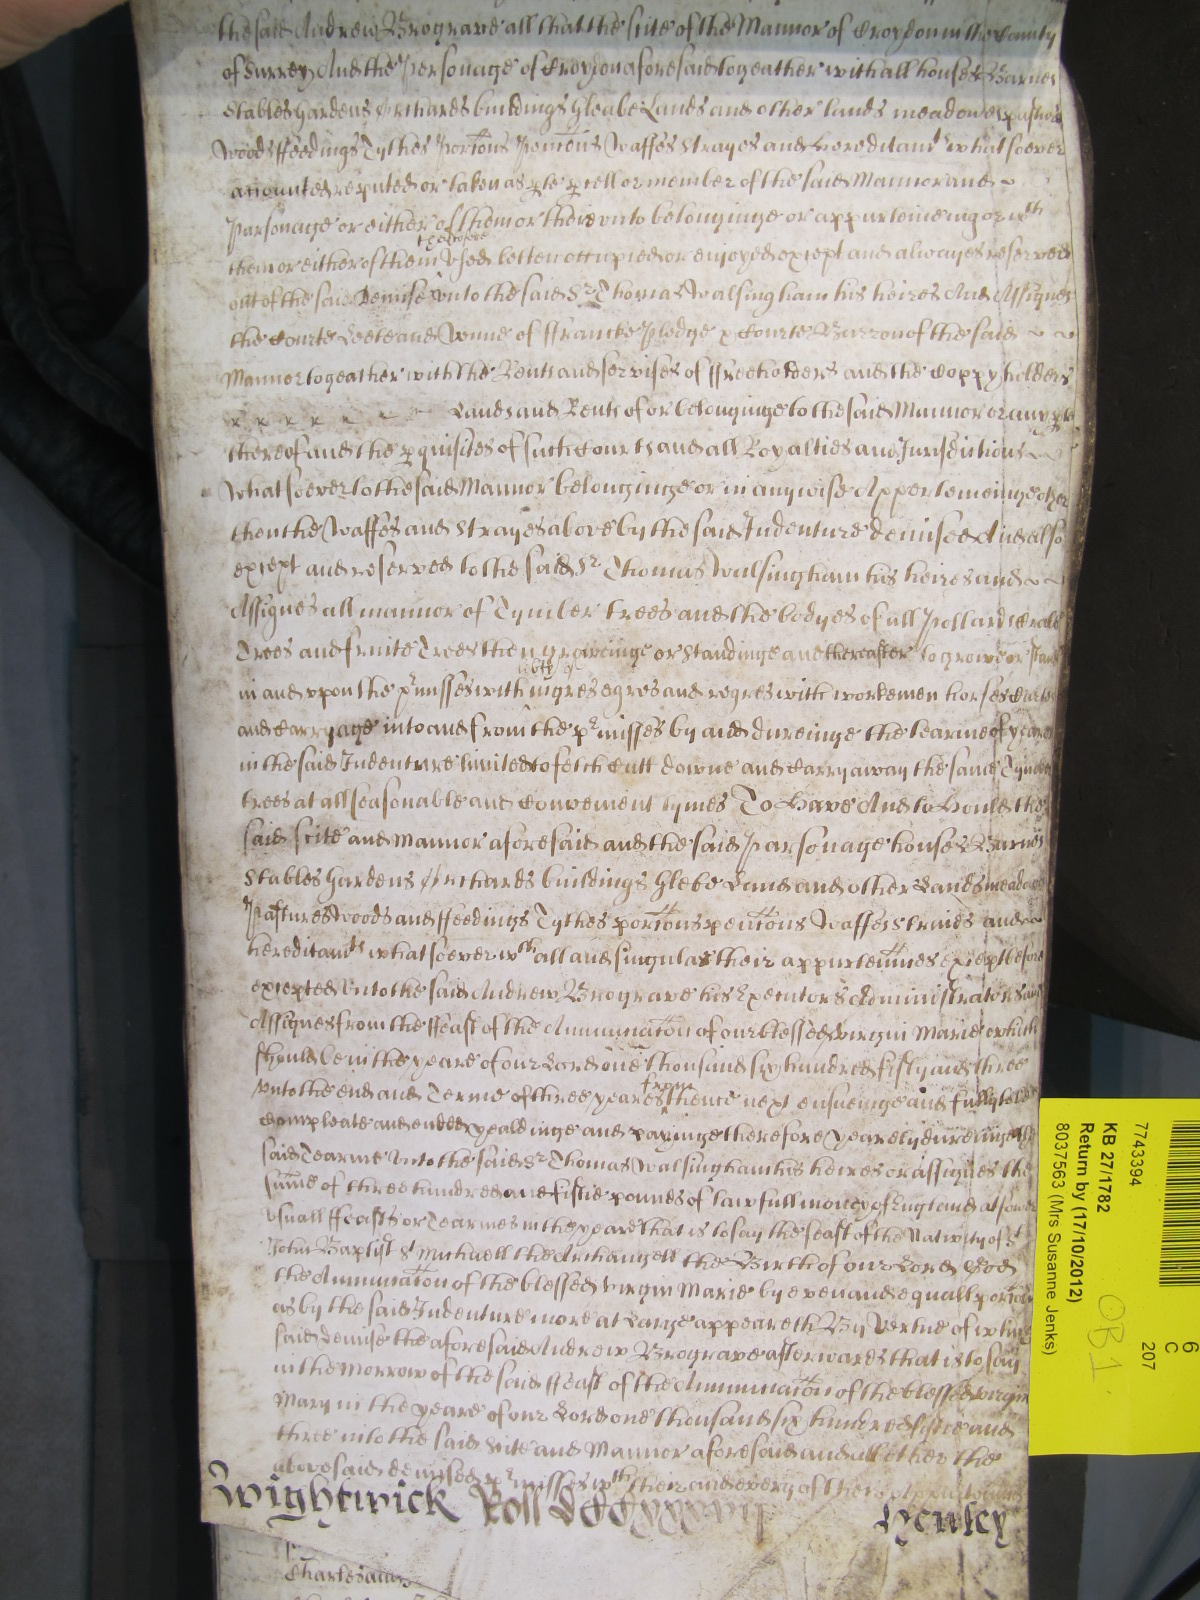 the said Andrew Brograve all that the scite of the Mannor of Croydon in the County
of Surrey And the Personage of Croydon aforesaid togeather with all houses Barnes
Stables Gardens Orchards buildings Gleabe Lands and other lands meadowes pastures
Woods ffeedings Tythes Portons Pentons Waffes Strayes and hereditamts whatsoever
accounted reputed or taken as pte pcell or member of the said Mannor and
Parsonage or either of them or theireunto belonginge or appurteineing or wth
theretofore
them or either of them Used letten occupied or enjoyed except and alwayes reserved
out of the said Demise unto the said Sr Thomas Walsingham his heires And Assignes
the Courte Leete and Vewe of ffrancke Pledge & Courte Barron of the said
Mannor togeather with the Rents and servises of ffreeholders and the Coppyholders
Lands and Rents of or belonginge to the said Mannor or any pte
thereof and the pquisites of such Courts and all Royalties and Jurisdictions
Whatsoever to the said Mannor belonginge or in any wise Apperteineinge other
then the Waffes and Strayes above by the said Indenture demised And also
except and reserved to the said Sr Thomas Walsingham his heires and
Assignes all mannor of Tymber trees and the bodyes of all Pollard
Trees and fruite Trees then groweinge or standinge and thereafter to growe or stand
libty of
in and uppon the pmisses with ingres egres and regres with workemen horses Carts
and Carryage into and from the pmisses by and dureinge the tearme of yeares
in the said Indenture limited to fetch Cutt downe and Carry away the same Tymber
trees at all seasonable and Convenient tymes To Have And to Hould the
said scite and Mannor aforesaid and the said Parsonage houses Barnes
Stables Gardens Orchards buildings Glebe Land and other Lands meadowes
Pastures Woods and ffeedings Tythes portons pentons Waffes Straids and
hereditamts whatsoever wth all and singular their appurtennces except before
excepted Unto the said Andrew Brograve his Executors Administrators and
Assignes from the ffeast of the Annunciaton of our blessed virgin Marie which
should be in the yeare of our Lord one thousand six hundred fifty and three
from
unto the end and Terme of three yeares thence next ensueinge and fully to be
Compleate and ended yealdinge and payinge therefore yearely dureinge the
said Tearme Unto the said Sr Thomas Walsingham his heires or assignes the
sume of three hundred and fiftie pounds of lawfull money of England at fower
Usuall ffeasts or Tearmes in the yeare that is to say the feast of the Nativity of St
John Baptist St Michaell the Archangell the Birth of our Lord God
the Annunciaton of the blessed virgin Marie by even and equall portons
as by the said Indenture more at Large appeareth By Vertue of which
said Demise the aforesaid Andrew Brograve afterwards that is to say
in the Morrow of the said ffeast of the Annunciaton of the blessed virgin
Mary in the yeare of our Lord one thousand six hundred fiftie and
three into the said Scite and Mannor aforesaid and all other the
abovesaid demised pmisses wth their and every of their Appurtennces
Wightwick Roll Henley
Charles
7743394
KB 27/1782
Return by (17/10/2012)
8037563 (Mrs Susanne Jenks)
6
C
207
OB 1